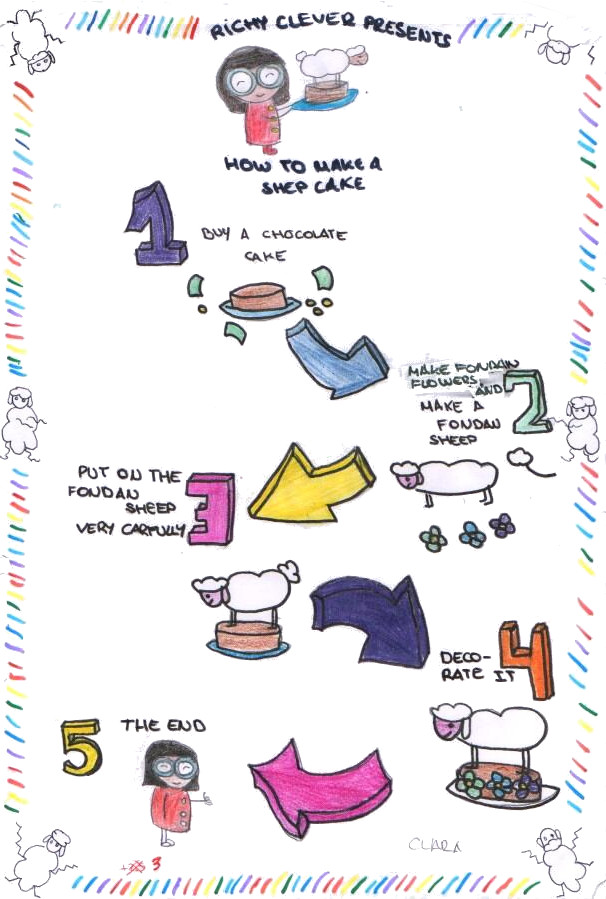 RICHY CLEVER PRESENTS
HOW TO MAKE A
SHEP CAKE
1
BUY A CHOCOLATE
CAKE
MAKE FONDAN
FLOWERS, AND
2
MAKE A
FONDAN
SHEEP
PUT ON THE
FONDAN
SHEEP
VERY CARFULLY
3
DECO-
RATE IT
4
5
THE END
CLARA
3